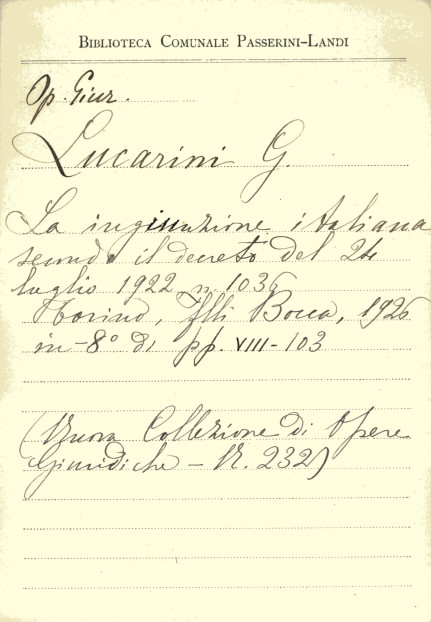 BIBLIOTECA COMUNALE PASSERINI-LANDI
Op. Giur.
Lucarini G.
La ingiunzione italiana
secondo il decreto del 24
luglio 1922 n. 1036
Torino, F.lli Bocca, 1926
in-8° di pp. VIII-103
(Nuova Collezione di Opere
Giuridiche - N. 232)